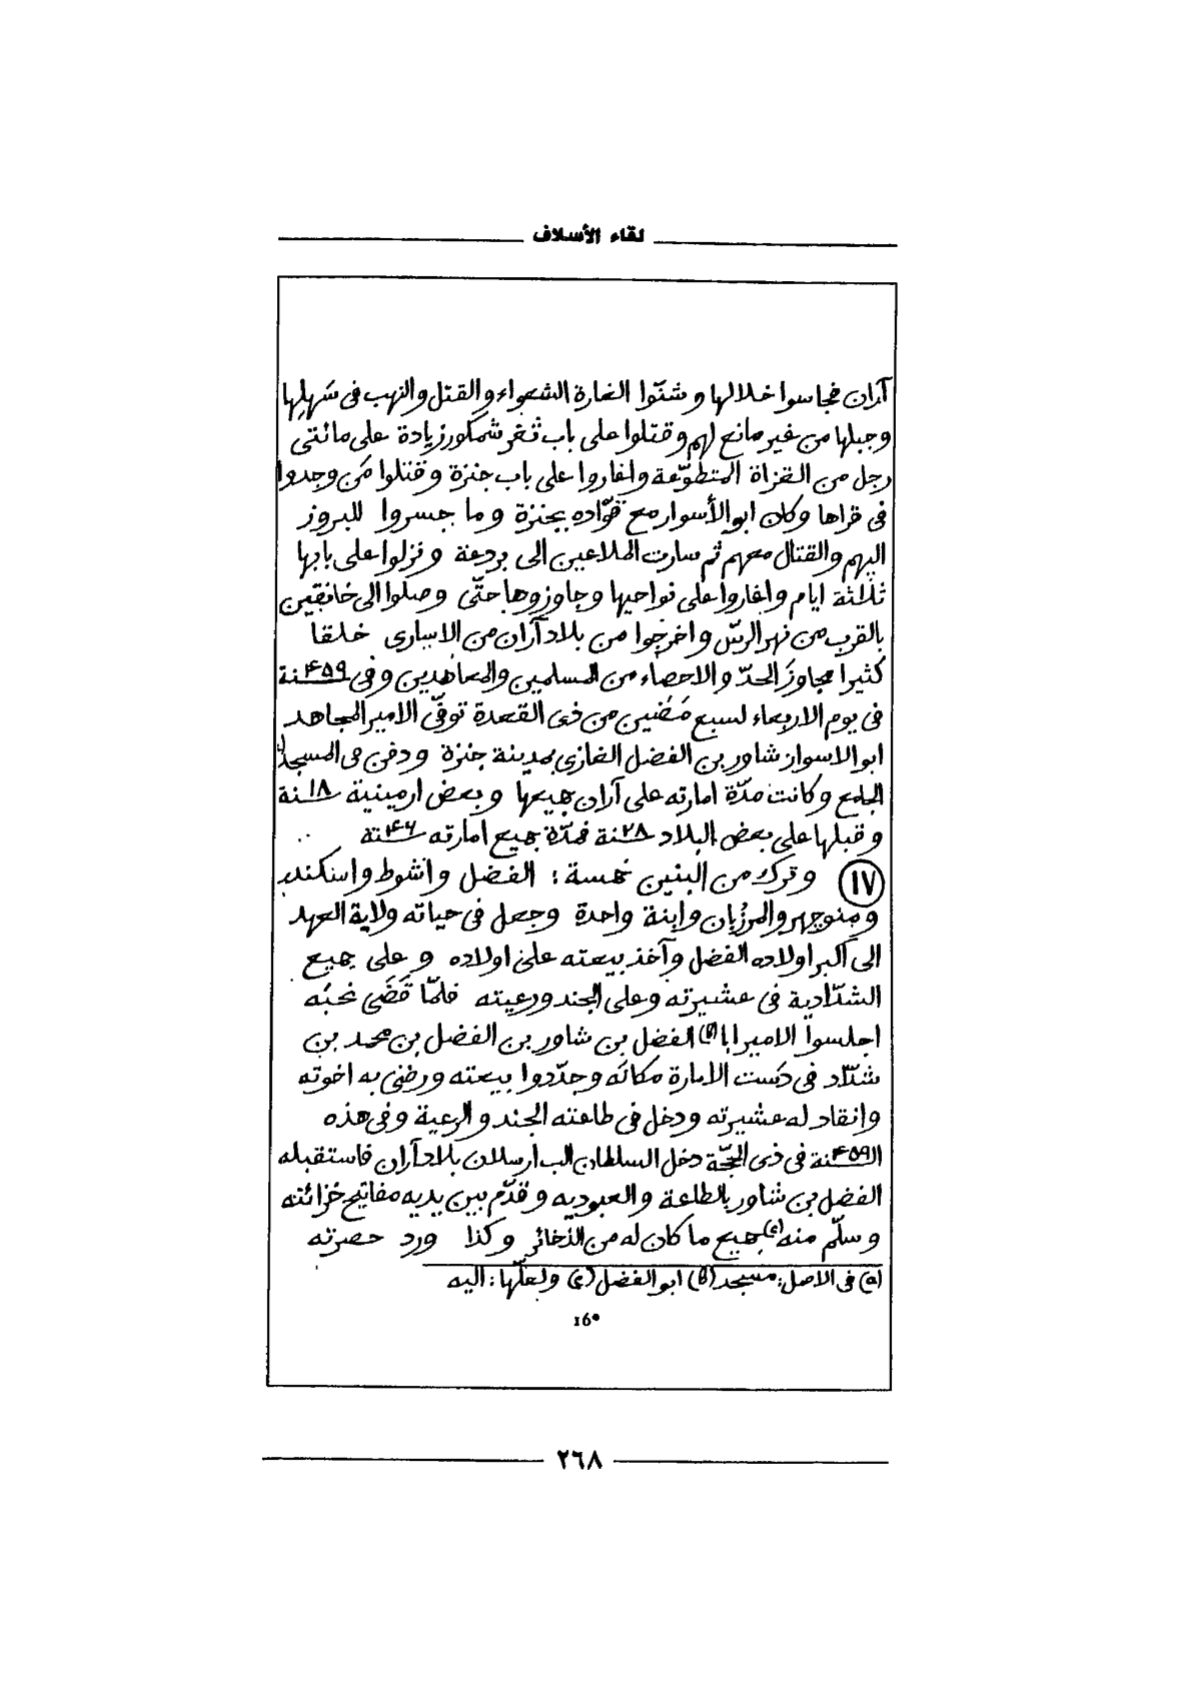 لقاء الأسلاف
آران فجاسوا خلالها وشنّوا الغارة الشعواء والقتل والنهب فى سَهلِها
وجبلها من غير مانع لهم وقتلوا على باب ثغر شمكور زيادة على مائتى
رجل من الغزاة المتطوّعة واغاروا على باب جنزة وقتلوا مَن وجدوا
فى قراها وكان ابو الأسوار مع قوّاده بجنزة وما جسروا للبروز
اليهم والقتال معهم ثم سارت الملاعين الى بردعة ونزلوا على بابها
ثلثة ايام واغاروا على نواحيها وجاوزوها حتّى وصلوا الى خانقين
بالقرب من نهر الرسّ واخرجوا من بلاد آران من الاسارى خلقا
كثيرا مجاوزَ الحدّ والاحصاء من المسلمين والمعاهدين وفى ۴۵۹ سنة
فى يوم الاربعاء لسبع مَضَين من ذى القعدة توفّى الامير المجاهد
ابو الاسوار شاور بن الفضل الغازى بمدينة جنزة ودفن فى المسجد
الجامع وكانت مدّة امارته على آران جميعها وبعض ارمينية ۱۸ سنة
وقبلها على بعض البلاد ۲۸ سنة فمدّة جميع امارته ۴۶ سنة
(١٧) وترك من البنين خمسة: الفضل واشوط واسكندر
ومنوجهر والمرزُبان وابنة واحدة وجعل فى حياته ولاية العهد
الى اكبر اولاده الفضل وآخذ بيعته على اولاده وعلى جميع
الشدّادية فى عشيرته وعلى الجند ورعيته فلمّا قَضَى نحبَه
اجلسوا الامير ابا(b) الفضل بن شاور بن الفضل بن محمد بن
شدّاد فى دَست الامارة مكانَه وجدّدوا بيعته ورضى به اخوته
وانقاد له عشيرته ودخل فى طاعته الجند والرعية وفى هذه
السنة ۴۵۹ فى ذى الحجّة دخل السلطان الب ارسلان بلاد آران فاستقبله
الفضل بن شاور بالطاعة والعبودية وقدّم بين يديه مفاتيح خزائنه
وسلّم منه(c) جميع ما كان له من الذخائر وكذا ورد حضرته
(a) فى الاصل: مسجد (b) ابو الفضل (c) ولعلّها: اليه
16•
٢٦٨